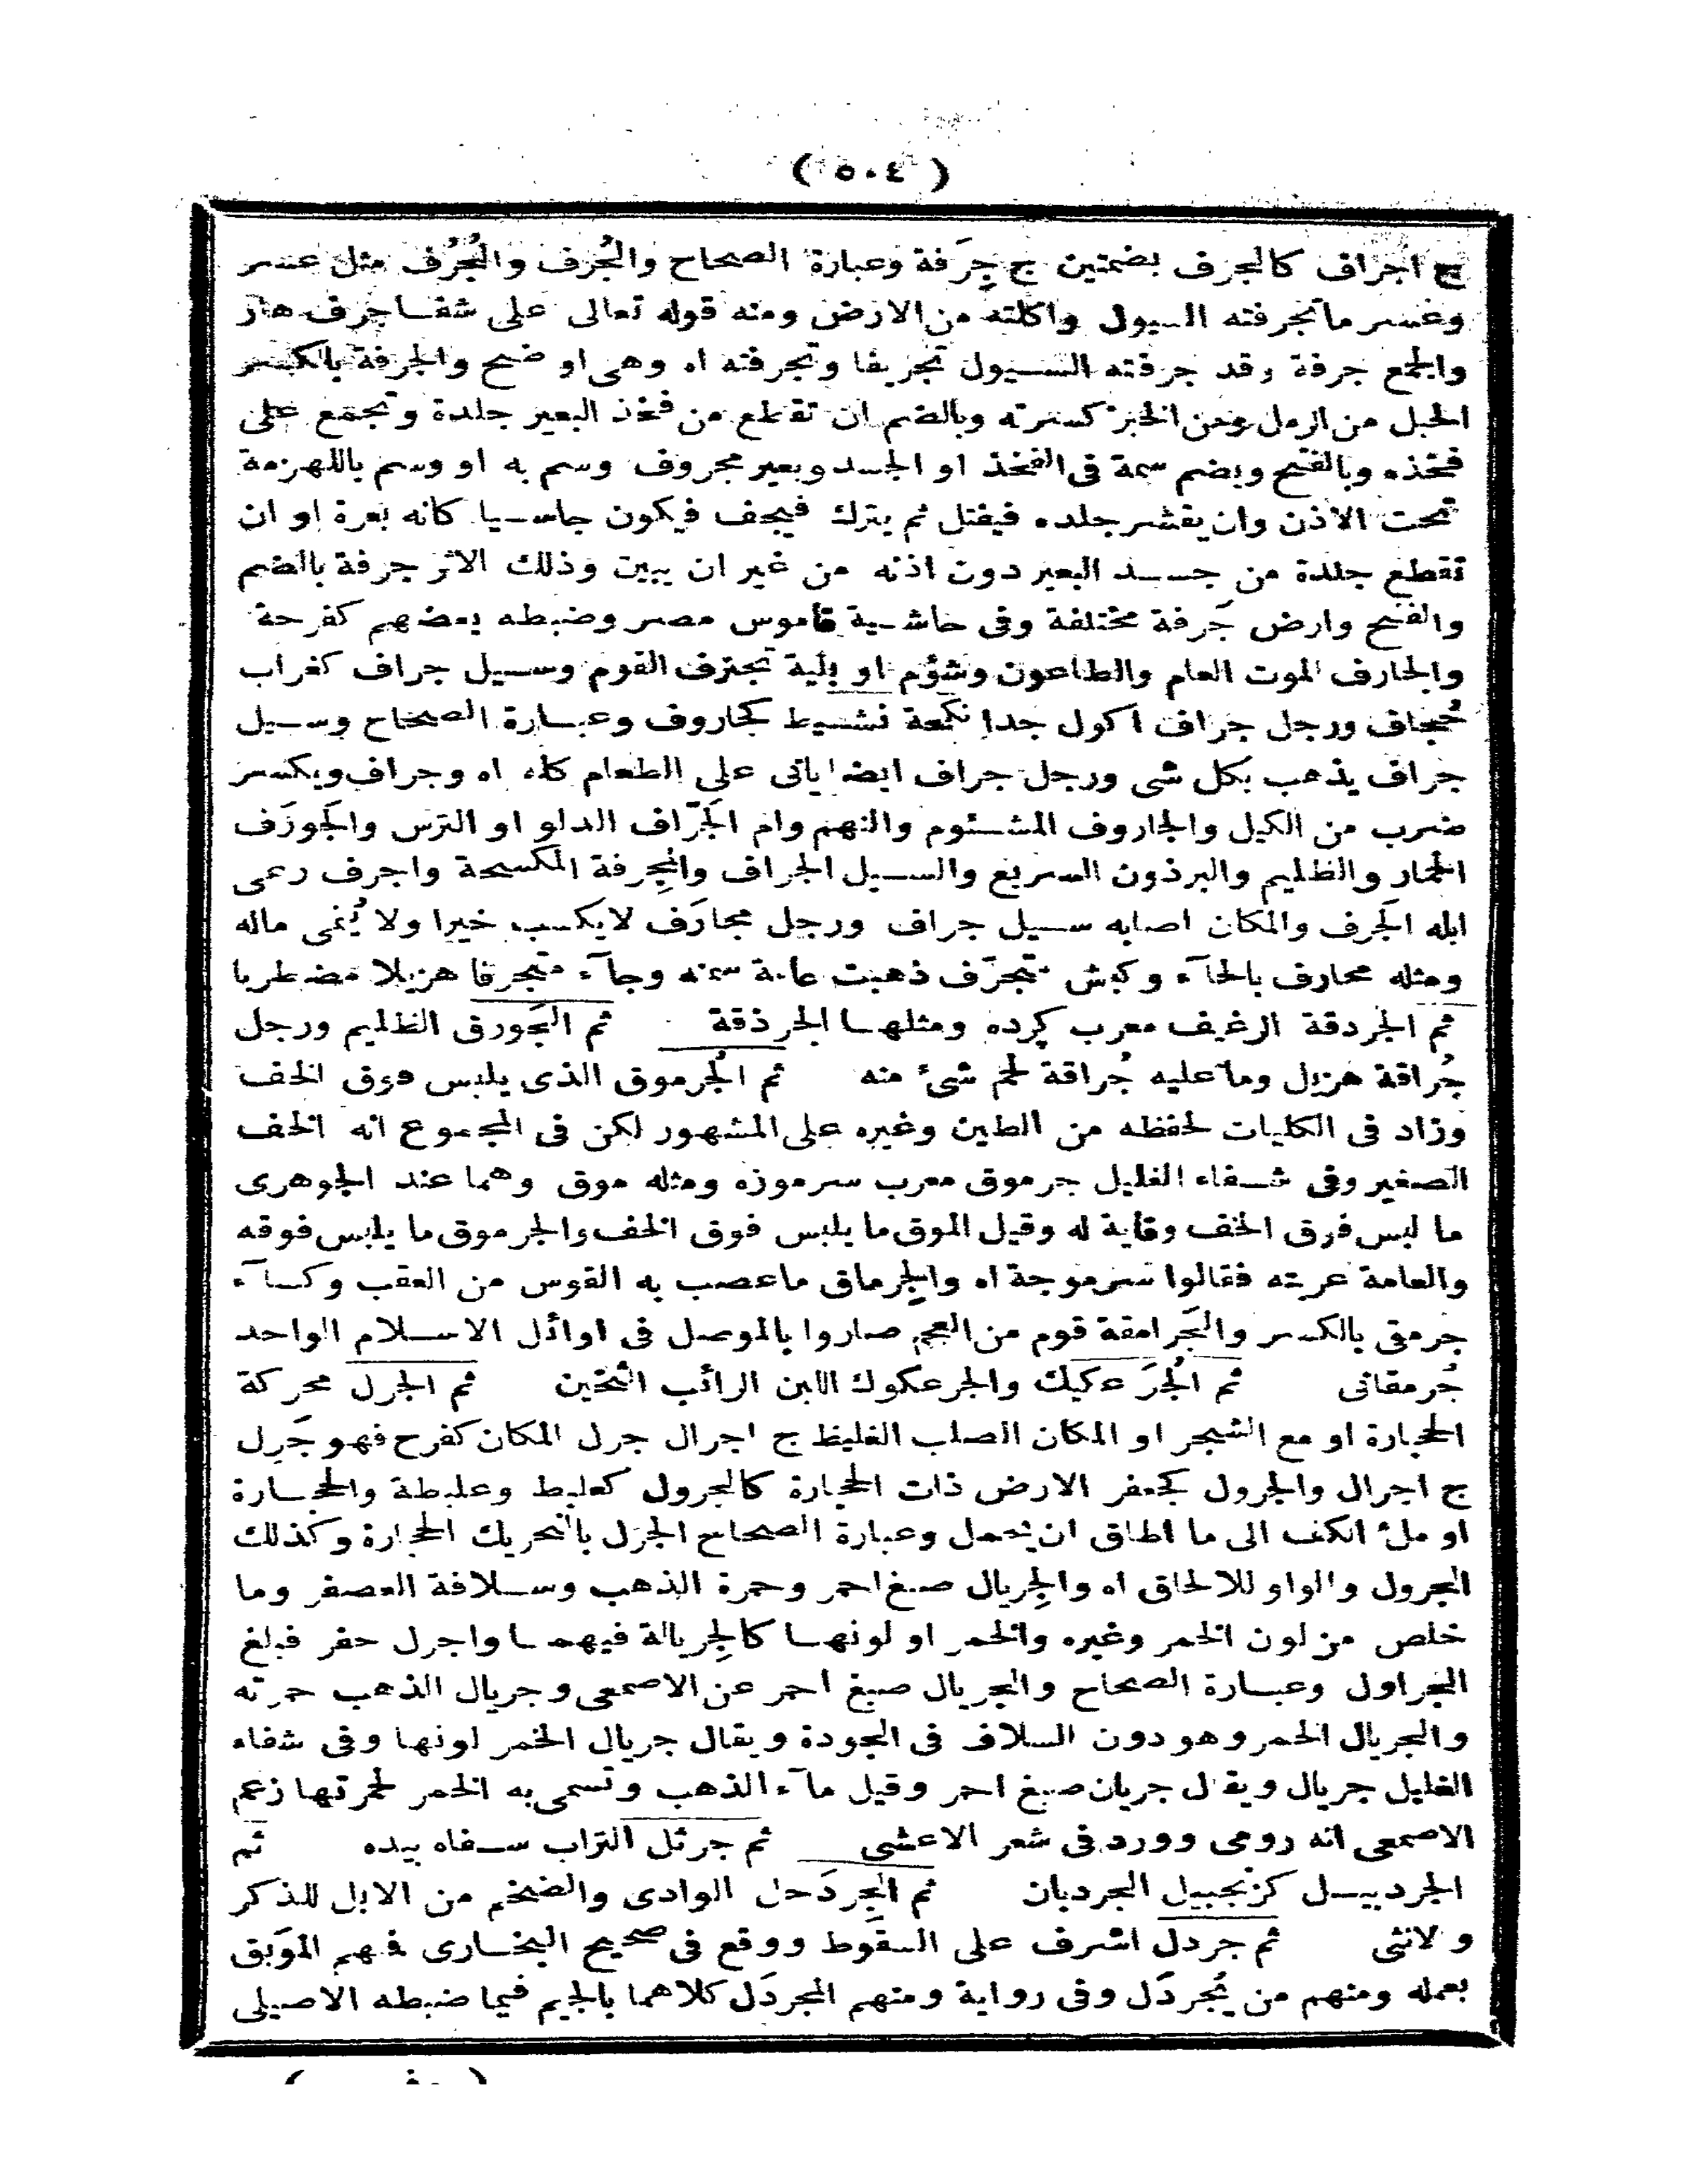 ( ٥٠٤ )
ج اجراف كالجرف بضمتين ج جِرَفة وعبارة الصحاح والجُرف والجُرُف مثل عسر
وعسر ما تجرفته السيول واكلته من الارض ومنه قوله تعالى على شفا جرف هار
والجمع جرفة وقد جرفته السيول تجريفا وتجرفته اه وهى اوضح والجرفة بالكسر
الحبل من الرمل ومن الخبز كسرته وبالضم ان تقطع من فخذ البعير جلدة وتجمع على
فخذه وبالفتح ويضم سمة فى الفخذ او الجسد وبعير مجروف وسم به او وسم باللهزمة
تحت الاذن وان يقشر جلده فيفتل ثم يترك فيجف فيكون جاسيا كانه بعرة او ان
تقطع جلدة من جسد البعير دون اذنه من غير ان يبين وذلك الاثر جرفة بالضم
والفتح وارض جَرفة مختلفة وفى حاشية قاموس مصر وضبطه بعضهم كفرحة
والجارف الموت العام والطاعون وشؤم او بلية تجترف القوم وسيل جراف كغراب
جُحاف ورجل جراف اكول جدا نكحة نشيط كجاروف وعبارة الصحاح وسيل
جراف يذهب بكل شى ورجل جراف ايضا ياتى على الطعام كله اه وجراف ويكسر
ضرب من الكيل والجاروف المشئوم والنهم وام الجَرّاف الدلو او الترس والجَورَف
الحمار والظليم والبرذون السريع والسيل الجراف والمِجرفة المكسحة واجرف رعى
ابله الجَرف والمكان اصابه سيل جراف ورجل مجارَف لا يكسب خيرا ولا يُنمى ماله
ومثله محارف بالحآء وكبش متجرّف ذهبت عامة سمنه وجآء متجرفا هزيلا مضطربا
ثم الجردقة الرغيف معرب كرده ومثلها الجرذقة ثم الجَورق الظليم ورجل
جُراقة هزيل وما عليه جُراقة لحم شىء منه ثم الجُرموق الذى يلبس فوق الخف
وزاد فى الكليات لحفظه من الطين وغيره على المشهور لكن فى المجموع انه الخف
الصغير وفى شفاء الغليل جرموق معرب سرموزه ومثله موق وهما عند الجوهرى
ما لبس فوق الخف وقاية له وقيل الموق ما يلبس فوق الخف والجرموق ما يلبس فوقه
والعامة عربته فقالوا سرموجة اه والجِرماق ما عصب به القوس من العقب وكسآء
جرمق بالكسر والجَرامقة قوم من العجم صاروا بالموصل فى اوائل الاسلام الواحد
جُرمقانى ثم الجُرَعكيك والجرعكوك اللبن الرائب الثخين ثم الجرل محركة
الحجارة او مع الشجر او المكان الصلب الغليظ ج اجرال جرل المكان كفرح فهو جَرِل
ج اجرال والجرول كجعفر الارض ذات الحجارة كالجرول كعلبط وعلبطة والحجارة
او ملء الكف الى ما اطاق ان يحمل وعبارة الصحاح الجرل بالتحريك الحجارة وكذلك
الجرول والواو للالحاق اه والجِريال صبغ احمر وحمرة الذهب وسلافة العصفر وما
خلص من لون الخمر وغيره والخمر او لونها كالجِريالة فيهما واجرل حفر فبلغ
الجراول وعبارة الصحاح والجريال صبغ احمر عن الاصمعى وجريال الذهب حمرته
والجريال الخمر وهو دون السلاف فى الجودة ويقال جريال الخمر لونها وفى شفاء
الغليل جريال ويقال جريان صبغ احمر وقيل مآء الذهب وتسمى به الخمر لحمرتها زعم
الاصمعى انه رومى وورد فى شعر الاعشى ثم جرثل التراب سفاه بيده ثم
الجردبيل كزنجبيل الجردبان ثم الجِردَحل الوادى والضخم من الابل للذكر
ولانثى ثم جردل اشرف على السقوط ووقع فى صحيح البخارى فمنهم الموَبق
بعمله ومنهم من يُجردَل وفى رواية ومنهم المجردَل كلاهما بالجيم فيما ضبطه الاصيلى